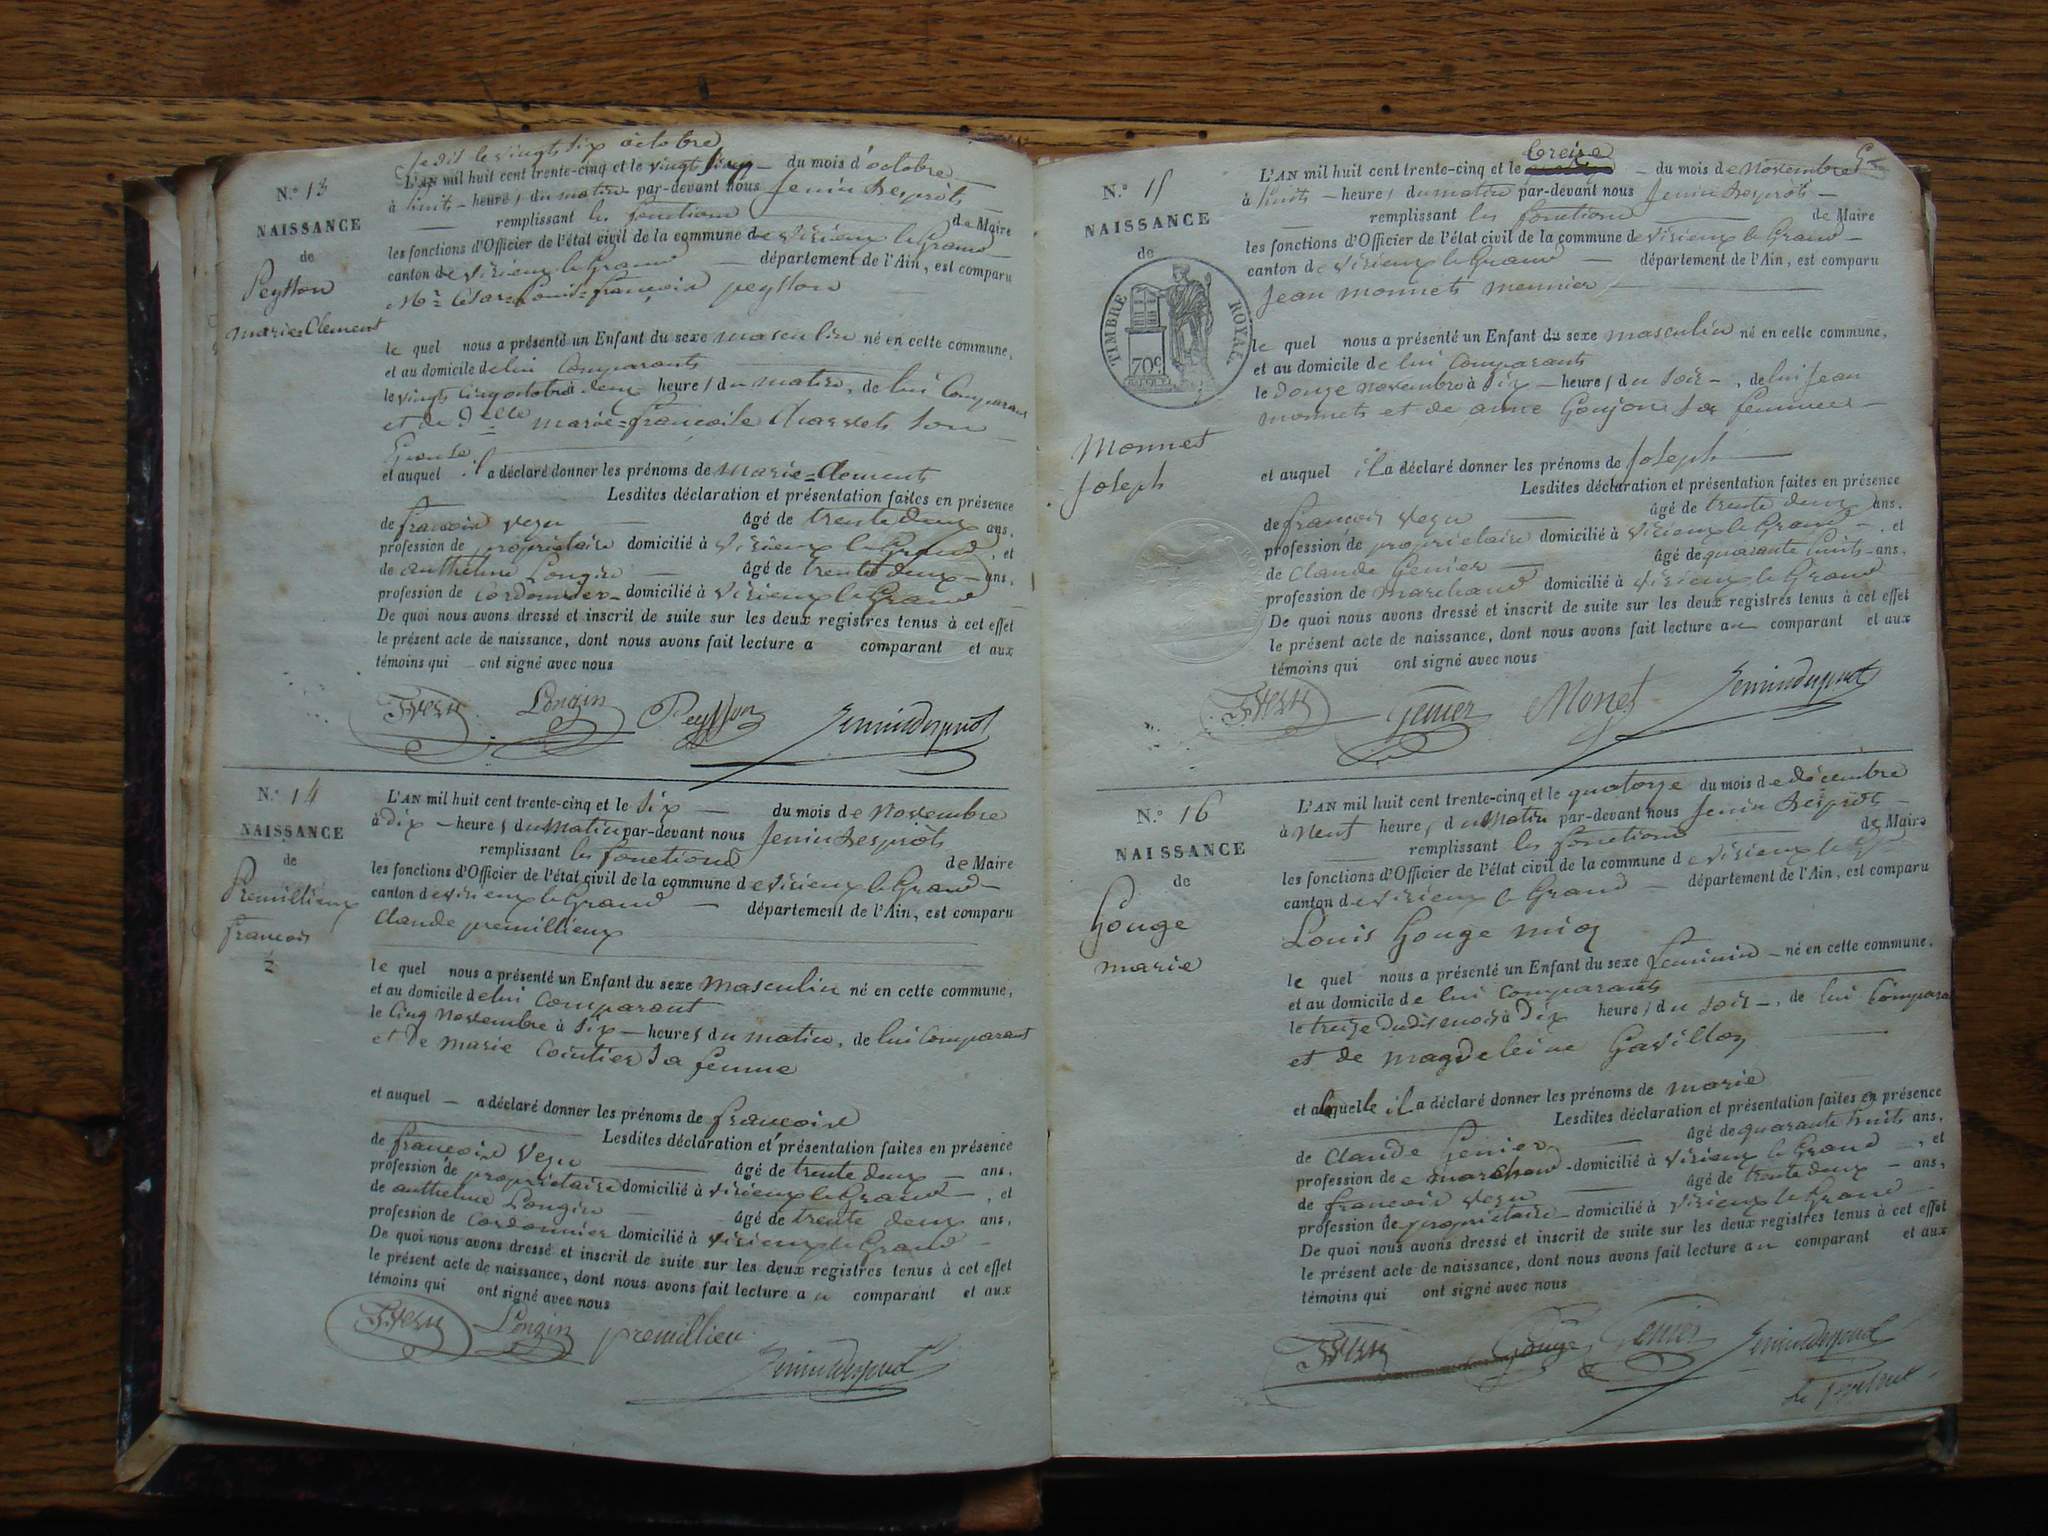 Je dis le vingt six octobre
N.° 13
NAISSANCE
de
Peysson
marie=Clement
L'AN mil huit cent trente-cinq et le vingt six — du mois d'octobre
à huit — heures du matin par-devant nous Jenin Desprôt
remplissant les fonctions de Maire
les fonctions d'Officier de l'état civil de la commune de Virieux le Grand
canton de Virieux le Grand — département de l'Ain, est comparu
Mr César=Louis=françois peysson
le quel nous a présenté un Enfant du sexe masculin né en cette commune,
et au domicile de lui Comparant
le vingt cinq octobre à deux heures du matin, de lui Comparant
et de Delle marie=françoise Charvet son
Epouse
et auquel il a déclaré donner les prénoms de marie=Clement
Lesdites déclaration et présentation faites en présence
de françois Vezu — âgé de trente deux ans,
profession de propriétaire domicilié à Virieux le Grand, et
de anthelme Longin — âgé de trente deux — ans,
profession de cordonnier — domicilié à Virieux le Grand
De quoi nous avons dressé et inscrit de suite sur les deux registres tenus à cet effet
le présent acte de naissance, dont nous avons fait lecture a comparant et aux
témoins qui ont signé avec nous
FVezu Longin Peysson Jenindesprot
N.° 14
NAISSANCE
de
Premillieux
francois
L'AN mil huit cent trente-cinq et le six — du mois de Novembre
à dix — heures du Matin par-devant nous Jenin Desprôt
remplissant les fonctions de Maire
les fonctions d'Officier de l'état civil de la commune de Virieux le Grand —
canton de Virieux le Grand — département de l'Ain, est comparu
Claude premillieux
le quel nous a présenté un Enfant du sexe Masculin né en cette commune,
et au domicile de lui Comparant
le cinq Novembre à six — heures du matin, de lui Comparant
et de Marie Cointier sa femme
et auquel — a déclaré donner les prénoms de françois
Lesdites déclaration et présentation faites en présence
de françois Vezu — âgé de trente deux — ans,
profession de propriétaire domicilié à Virieux le Grand —, et
de anthelme Longin — âgé de trente deux ans,
profession de cordonnier domicilié à Virieux le Grand —
De quoi nous avons dressé et inscrit de suite sur les deux registres tenus à cet effet
le présent acte de naissance, dont nous avons fait lecture au comparant et aux
témoins qui ont signé avec nous
FVezu Longin premillieu
Jenindesprot
N.° 15
NAISSANCE
de
TIMBRE ROYAL
70c
Monnet
Joseph
treize
L'AN mil huit cent trente-cinq et le — du mois de Novembre
à huit — heures du matin par-devant nous Jenin Desprôt —
remplissant les fonctions de Maire
les fonctions d'Officier de l'état civil de la commune de Virieux le Grand —
canton de Virieux le Grand — département de l'Ain, est comparu
Jean Monnet meunier —
le quel nous a présenté un Enfant du sexe masculin né en cette commune,
et au domicile de lui Comparant
le douze novembre à six — heures du soir —, de lui Jean
monnet et de anne Goujon sa femme —
et auquel il a déclaré donner les prénoms de Joseph —
Lesdites déclaration et présentation faites en présence
de françois Vezu — âgé de trente deux ans,
profession de propriétaire domicilié à Virieux le Grand —, et
de Claude Genier — âgé de quarante huit — ans,
profession de Marchand domicilié à Virieux le Grand
De quoi nous avons dressé et inscrit de suite sur les deux registres tenus à cet effet
le présent acte de naissance, dont nous avons fait lecture au comparant et aux
témoins qui ont signé avec nous
FVezu Genier Monet Jenindesprot
N.° 16
NAISSANCE
de
Gouge
marie
L'AN mil huit cent trente-cinq et le quatorze du mois de décembre
à neuf heures du Matin par-devant nous Jenin Desprôt —
remplissant les fonctions de Maire
les fonctions d'Officier de l'état civil de la commune de Virieux le Gd
canton de Virieux le Grand — département de l'Ain, est comparu
Louis Gouge
le quel nous a présenté un Enfant du sexe feminin — né en cette commune,
et au domicile de lui comparant
le treize dudit mois à dix heures du soir —, de lui Compara
et de Magdeleine Gavillon
et alaquelle il a déclaré donner les prénoms de marie
Lesdites déclaration et présentation faites en présence
de Claude Genier — âgé de quarante huit ans,
profession de marchand — domicilié à Virieux le Grand —, et
de françois Vezu — âgé de trente deux — ans,
profession de propriétaire — domicilié à Virieux le Grand
De quoi nous avons dressé et inscrit de suite sur les deux registres tenus à cet effet
le présent acte de naissance, dont nous avons fait lecture au comparant et aux
témoins qui ont signé avec nous
FVezu Gouge Genier Jenindesprot